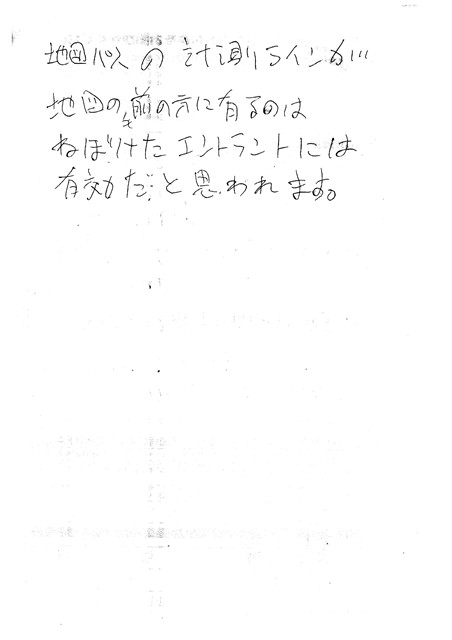 地図パスの計測ラインが…
地図の前の方に有るのは
ねぼけたエントラントには
有効だと思われます。